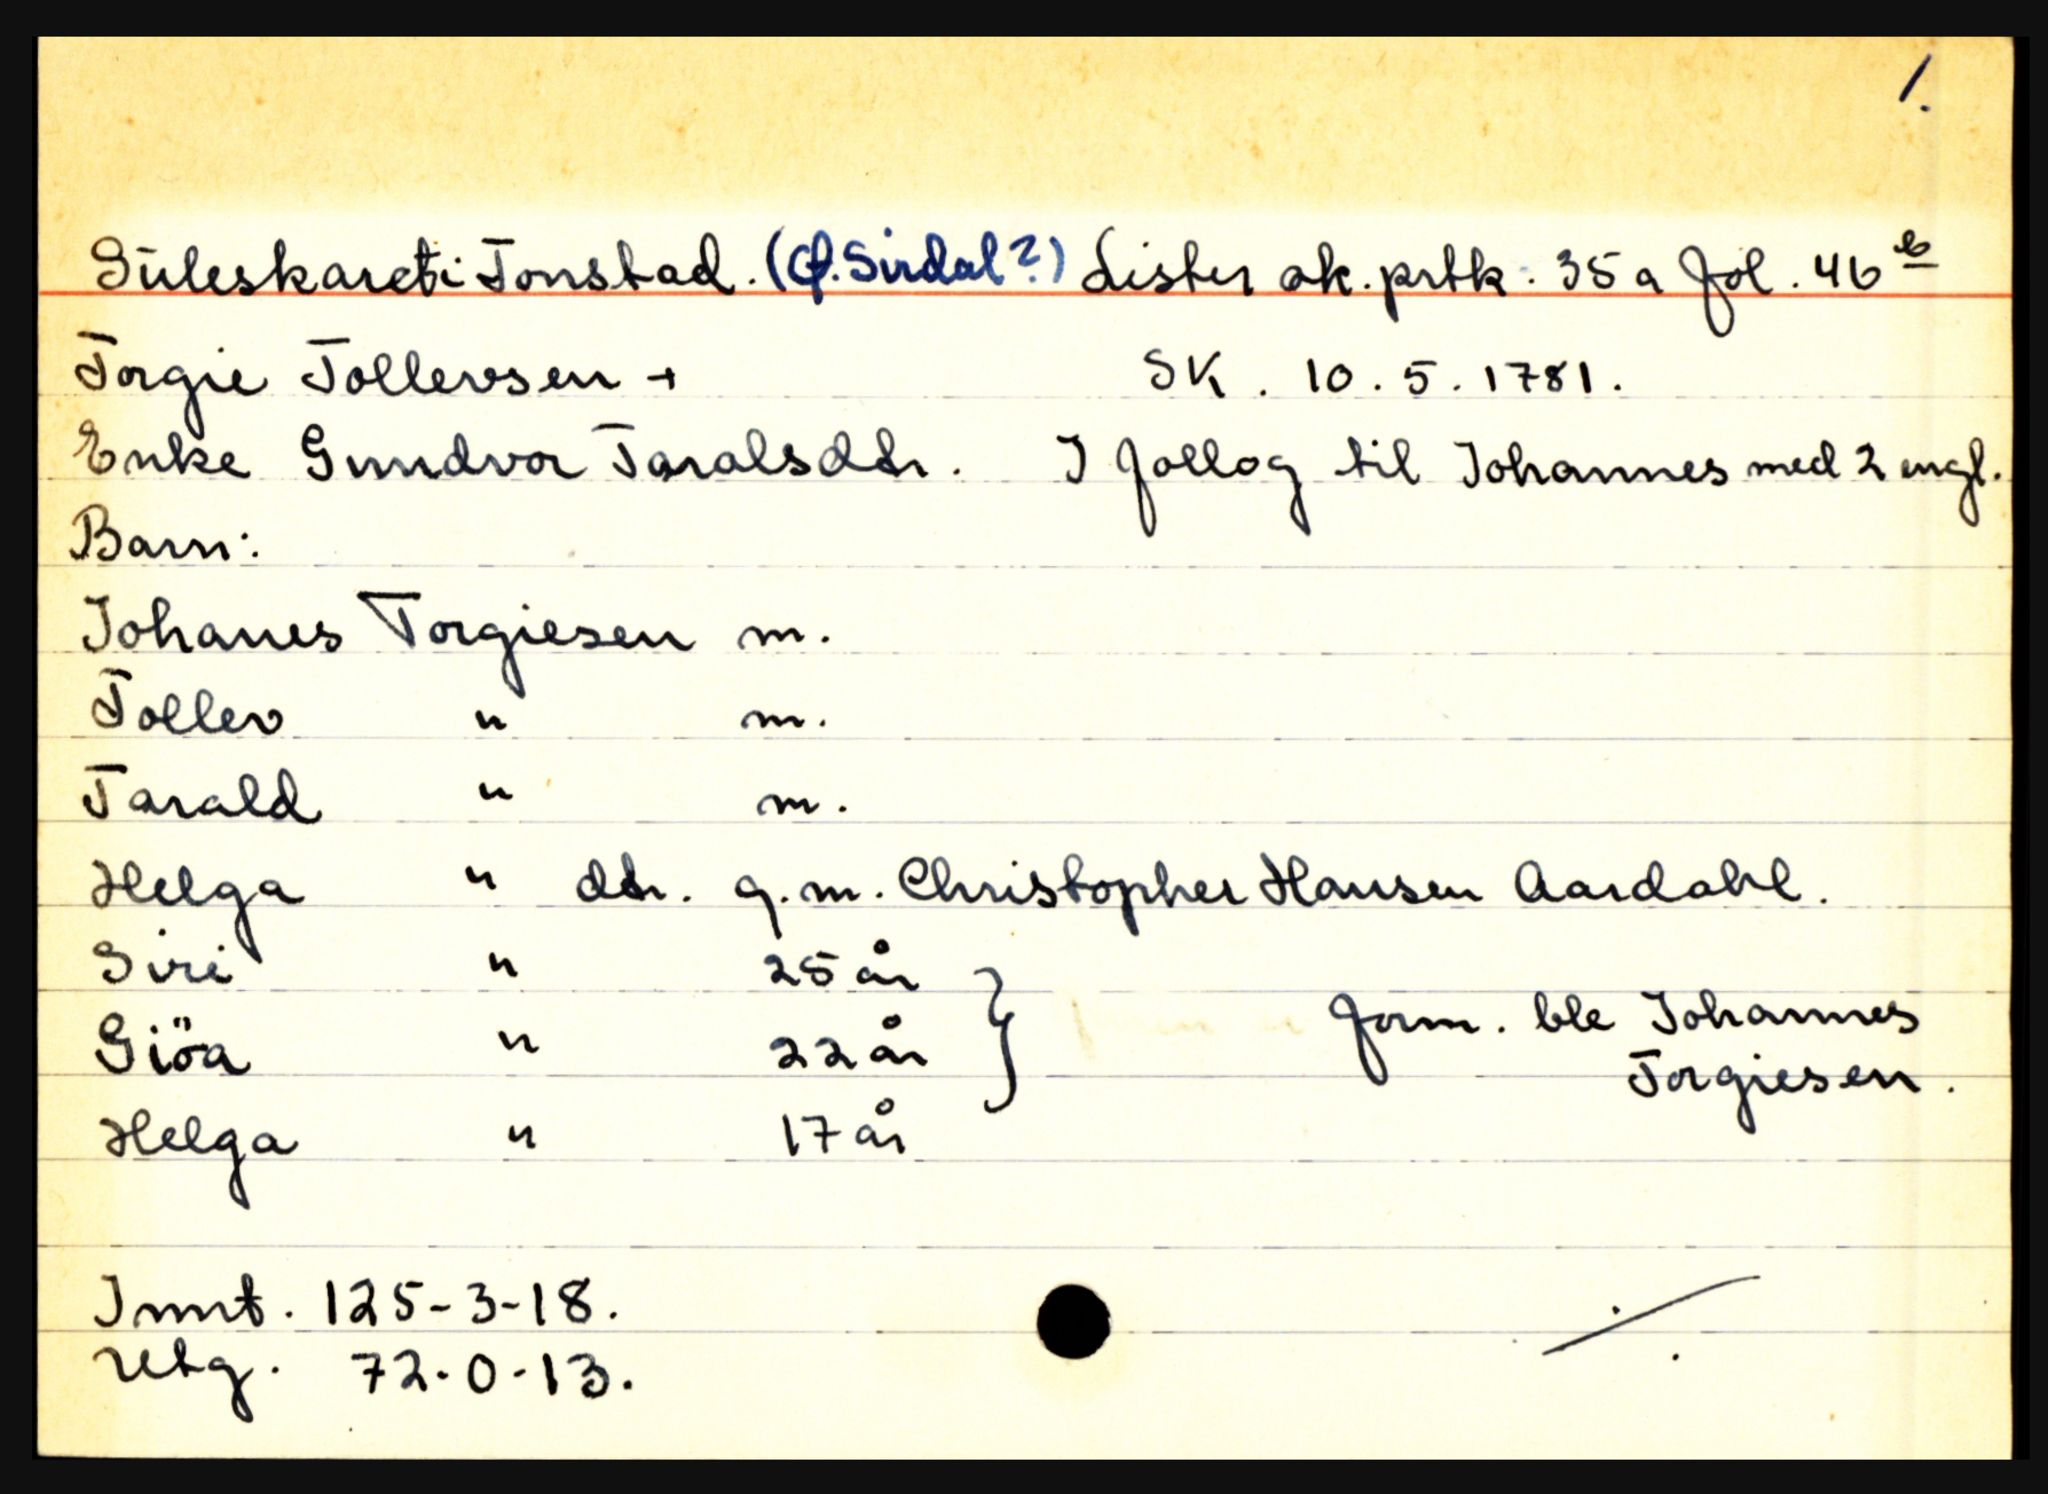 1.
Suleskaret i Tonstad. (Ø. Sirdal?) Lister sk. prtk. 35 a fol. 46 b
Torgie Tollevsen + SK. 10.5.1781.
Enke Gundvor Taralsdtr. I follog til Johannes med 2 ungl.
Barn:
Johanes Torgiesen m.
Tollev " m.
Tarald " m.
Helga " dtr. g.m. Christopher Hansen Aardahl.
Siri " 25 år
Giöa " 22 år } form. ble Johannes
Torgiesen.
Helga " 17 år
Innt. 125-3-18.
Utg. 72-0-13.